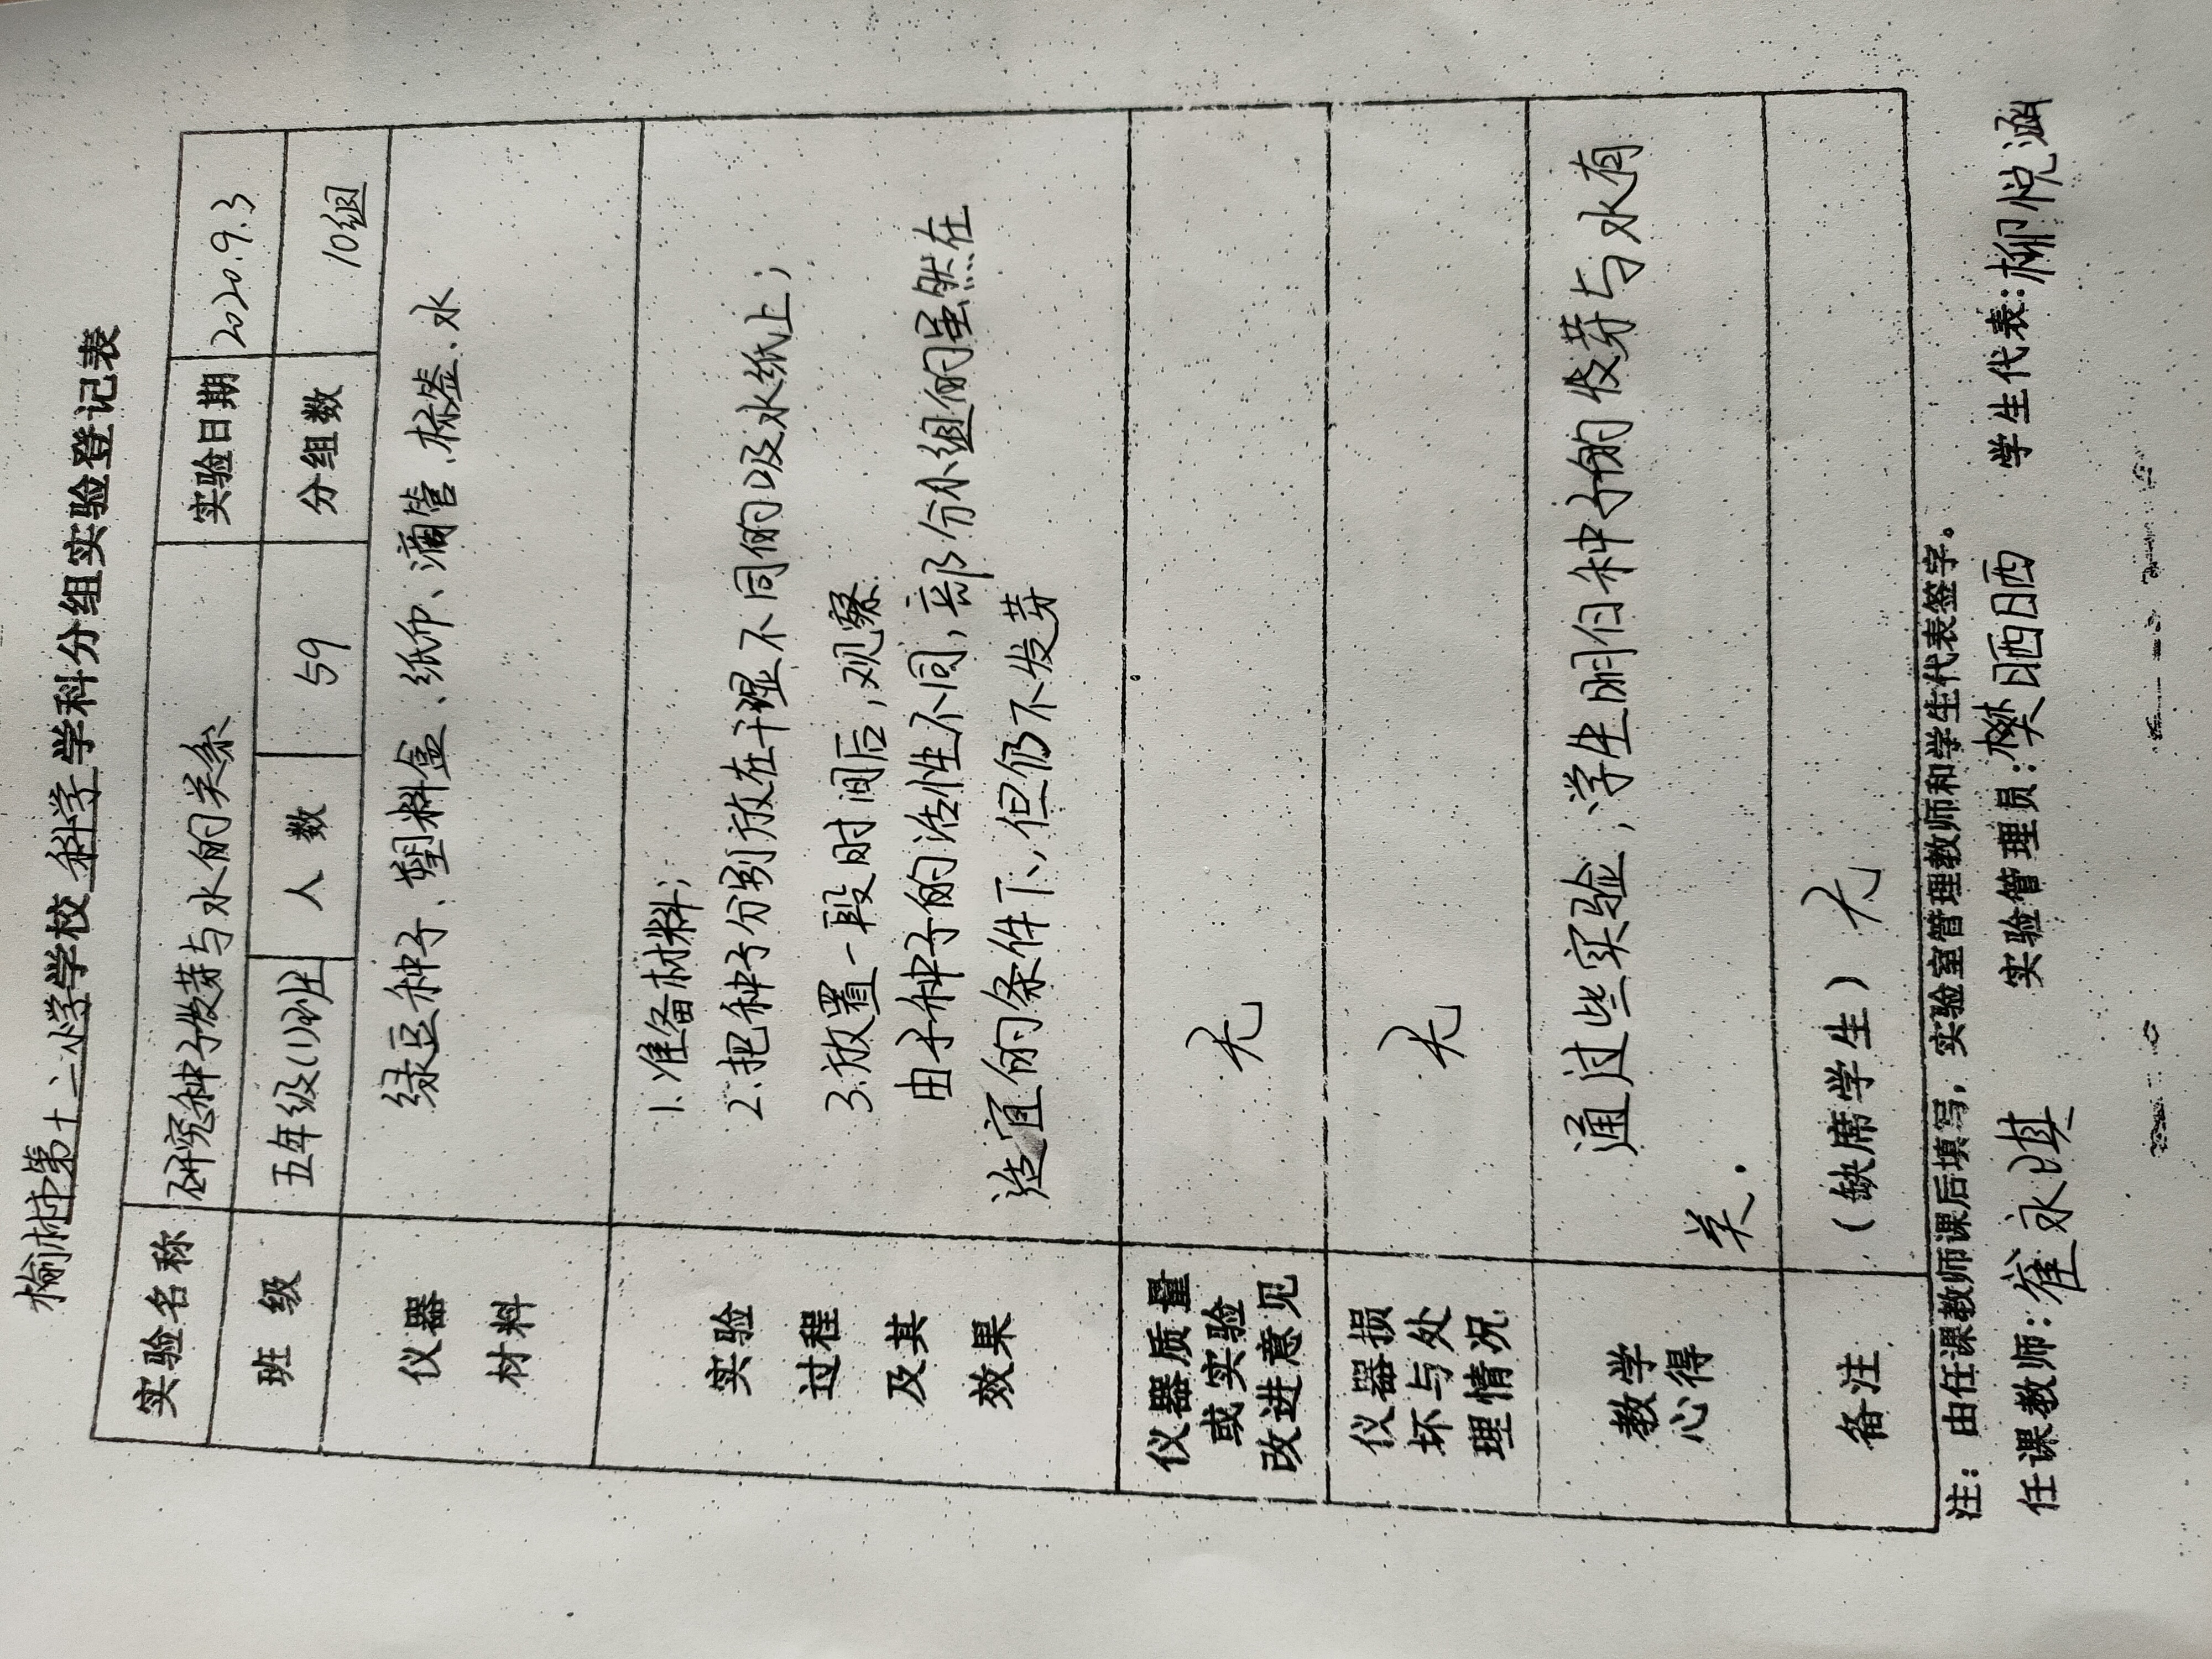 榆林市第十二小学学校 科学 学科分组实验登记表
实验名称 研究种子发芽与水的关系 实验日期 2020.9.3
班 级 五年级(1)班 人 数 59 分组数 10组
仪器 绿豆种子、塑料盒、纸巾、滴管、标签、水
材料
实验 1.准备材料;
过程 2.把种子分别放在干湿不同的吸水纸上;
及其 3.放置一段时间后,观察
效果 由于种子的活性不同,部分小组的虽然在
适宜的条件下,但仍不发芽
仪器质量
或实验 无
改进意见
仪器损
坏与处 无
理情况
教学 通过些实验,学生明白种子的发芽与水有
心得 关.
备注 (缺席学生) 无
注:由任课教师课后填写,实验室管理教师和学生代表签字。
任课教师:崔永琪 实验管理员:樊晒晒 学生代表:柳悦涵